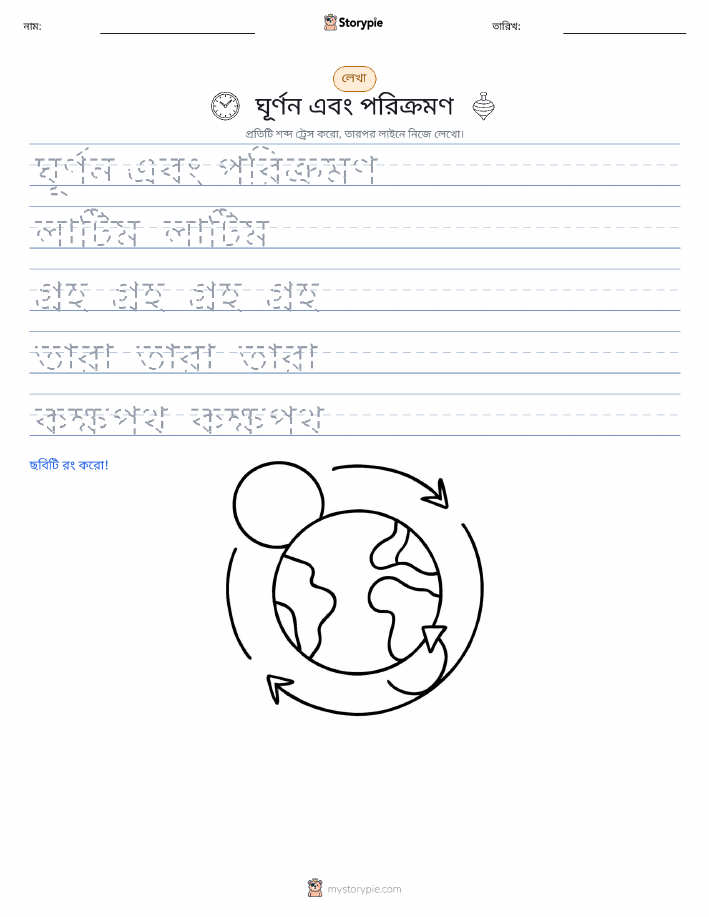 নাম: Storypie তারিখ:
লেখা
ঘূর্ণন এবং পরিক্রমণ
প্রতিটি শব্দ ট্রেস করো, তারপর লাইনে নিজে লেখো।
ঘূর্ণন এবং পরিক্রমণ
লাটিম লাটিম
গ্রহ গ্রহ গ্রহ গ্রহ
তারা তারা তারা
কক্ষপথ কক্ষপথ
ছবিটি রং করো!
mystorypie.com